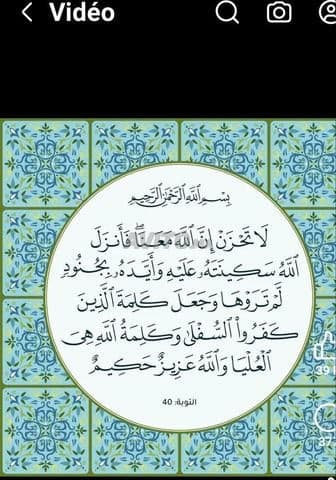 Vidéo
بِسْمِ ٱللَّهِ ٱلرَّحْمَٰنِ ٱلرَّحِيمِ
لَا تَحْزَنْ إِنَّ ٱللَّهَ مَعَنَا ۖ فَأَنزَلَ
ٱللَّهُ سَكِينَتَهُۥ عَلَيْهِ وَأَيَّدَهُۥ بِجُنُودٍ
لَّمْ تَرَوْهَا وَجَعَلَ كَلِمَةَ ٱلَّذِينَ
كَفَرُوا۟ ٱلسُّفْلَىٰ ۗ وَكَلِمَةُ ٱللَّهِ هِىَ
ٱلْعُلْيَا ۗ وَٱللَّهُ عَزِيزٌ حَكِيمٌ
التوبة: 40